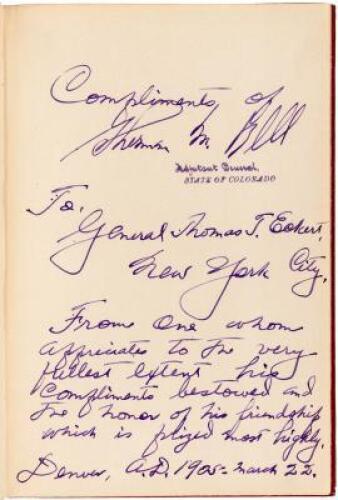 Compliments of
Sherman M. Bell
Adjutant General,
STATE OF COLORADO
To,
General Thomas T. Eckert,
New York City,
From one whom
appriciates to the very
fullest extent his
Compliments bestowed and
the honor of his friendship
which is prized most highly.
Denver, A.D. 1905 - March 22.